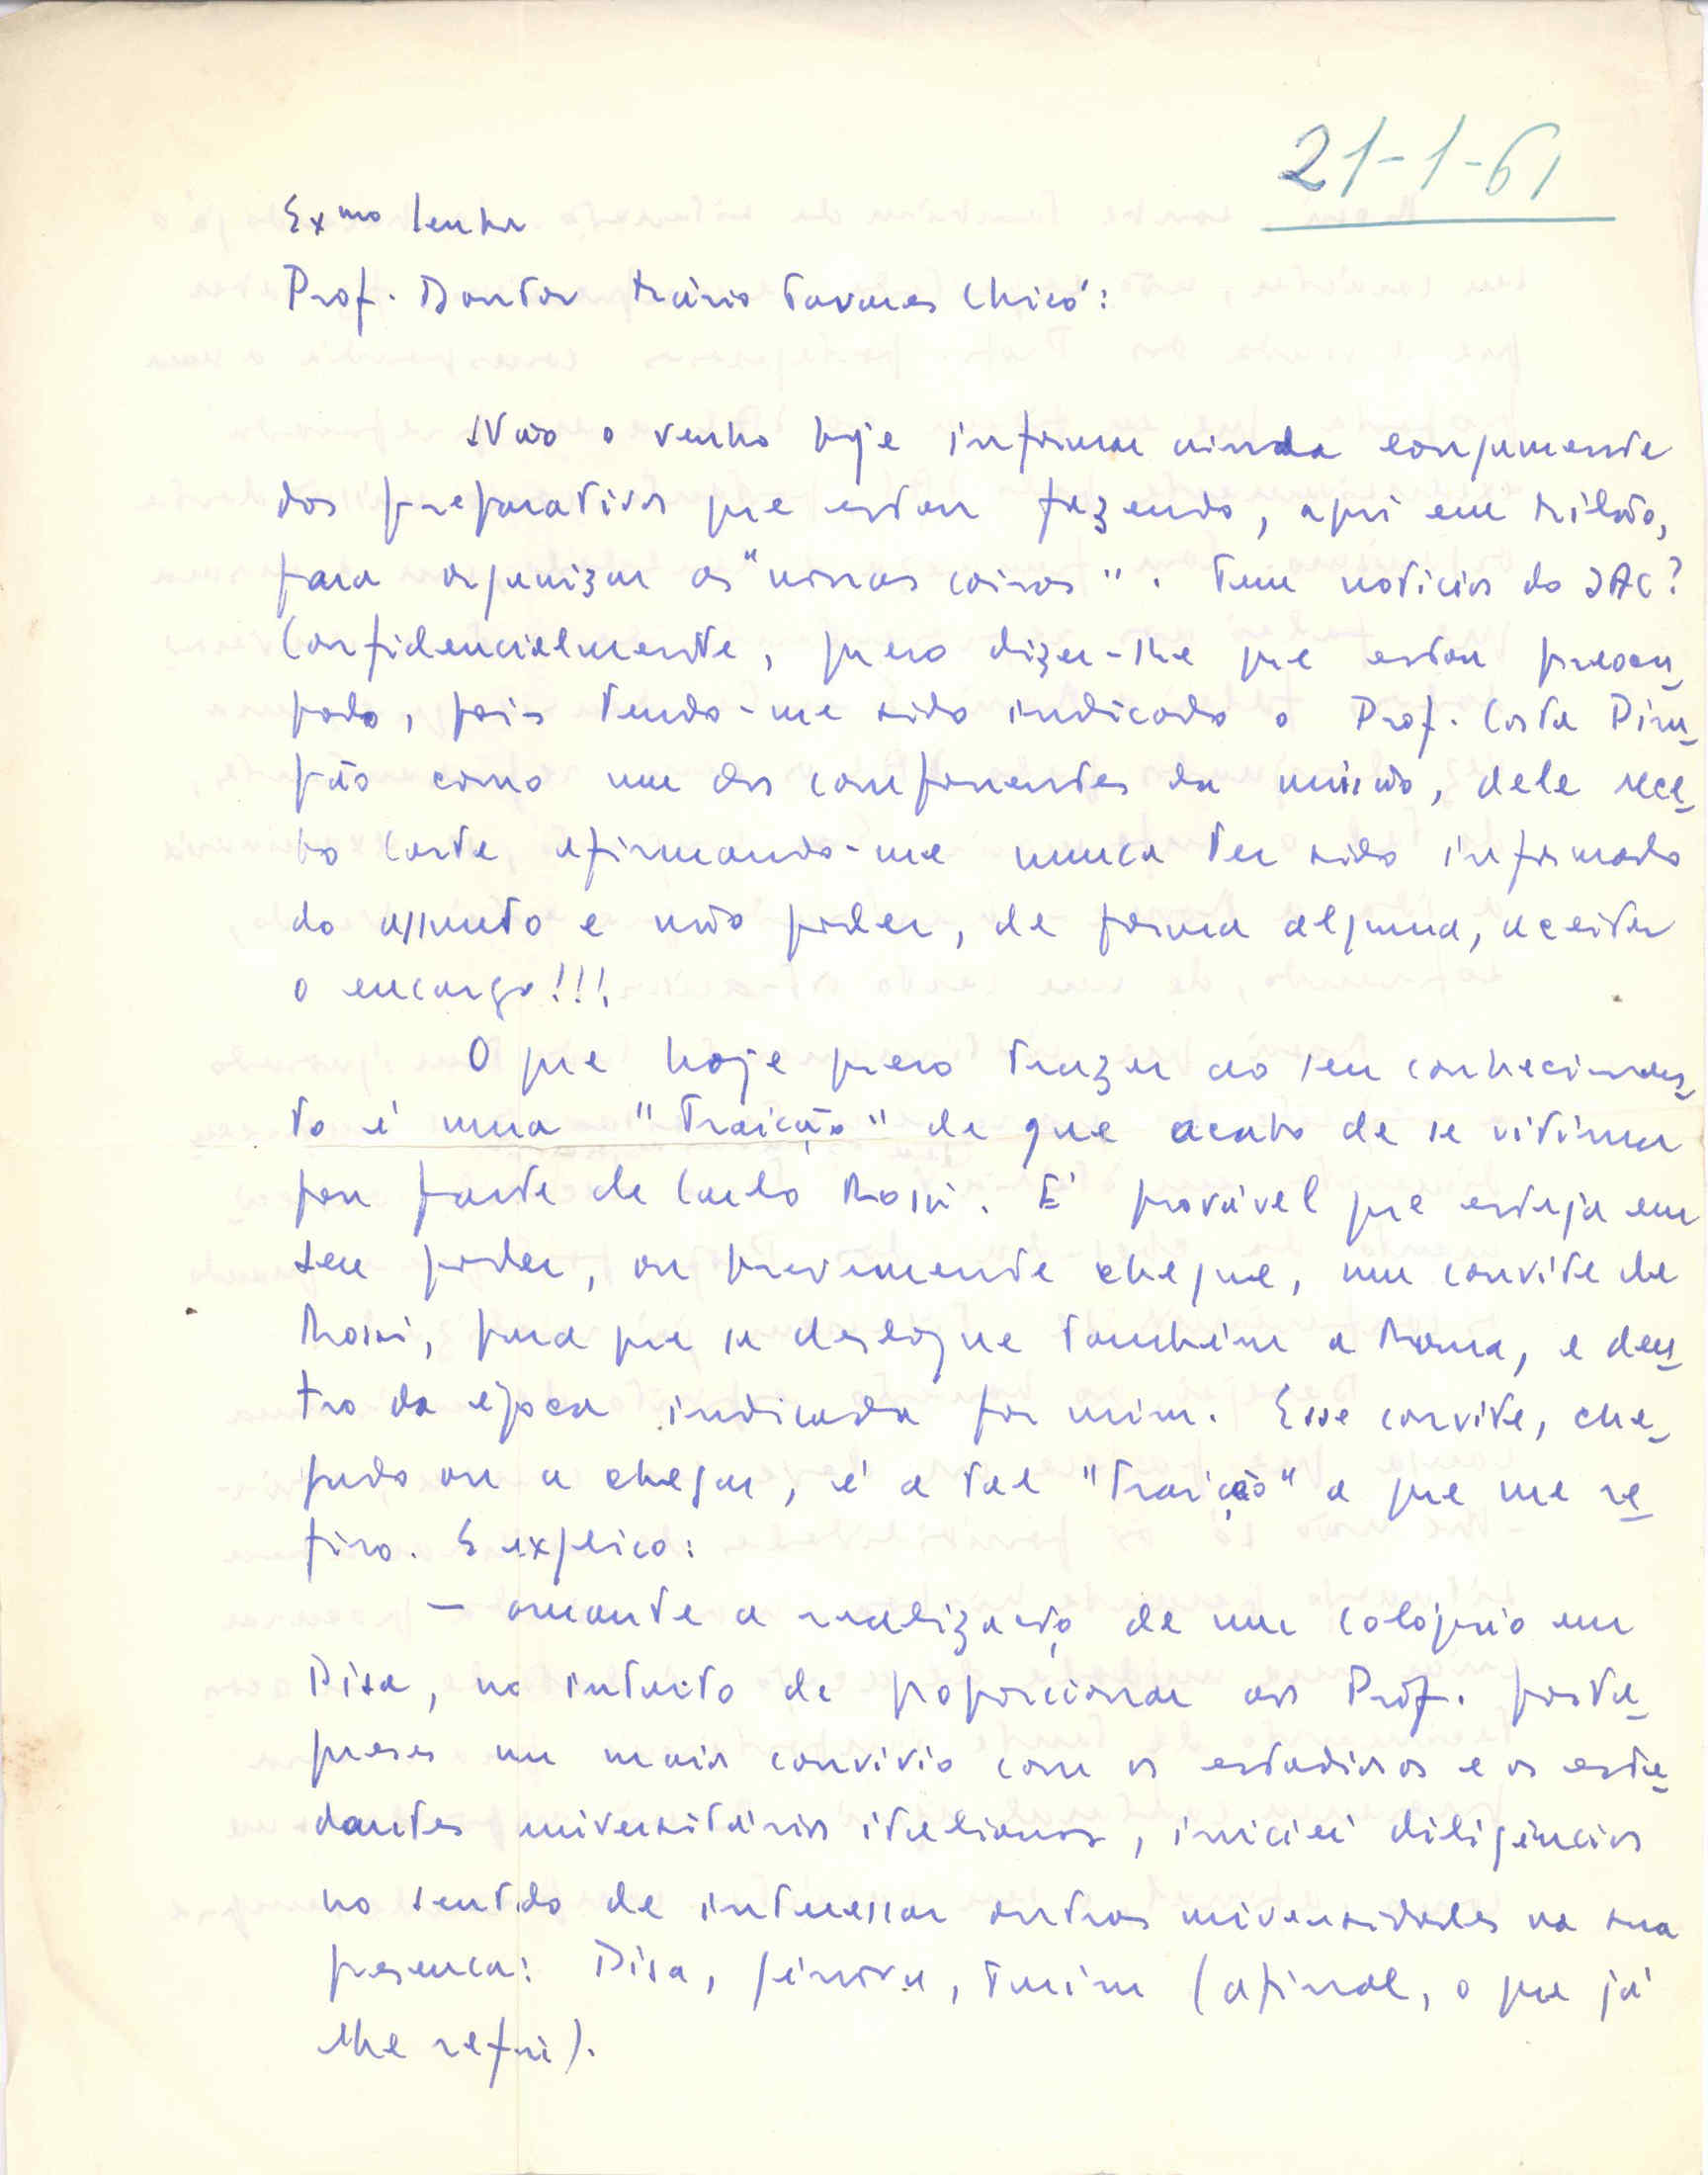 21-1-61
Exmo Senhor
Prof. Doutor Mário Tavares Chicó:
Não o venho hoje informar ainda longamente
dos preparativos que estou fazendo, aqui em Milão,
para organizar as "nossas coisas". Tem notícias do IAC?
Confidencialmente, quero dizer-lhe que estou preocu-
pado, pois tendo-me sido indicado o Prof. Costa Pim-
pão como um dos componentes da missão, dele rece-
bo carta afirmando-me nunca ter sido informado
do assunto e não poder, de forma alguma, aceitar
o encargo!!!
O que hoje quero trazer ao seu conhecimen-
to é uma "traição" de que acabo de se vitima
por parte de Carlo Rossi. É provável que esteja em
seu poder, ou brevemente chegue, um convite de
Rossi, para que se desloque também a Roma, e den-
tro da época indicada por mim. Esse convite, che-
gado ou a chegar, é a tal "traição" a que me re-
firo. E explico:
— durante a realização de um colóquio em
Pisa, no intuito de proporcionar aos Prof. portu-
gueses um maior convívio com os estudiosos e os estu-
dantes universitários italianos, iniciei diligências
no sentido de interessar outras universidades na sua
presença: Pisa, Génova, Turim (afinal, o que já
lhe referi).